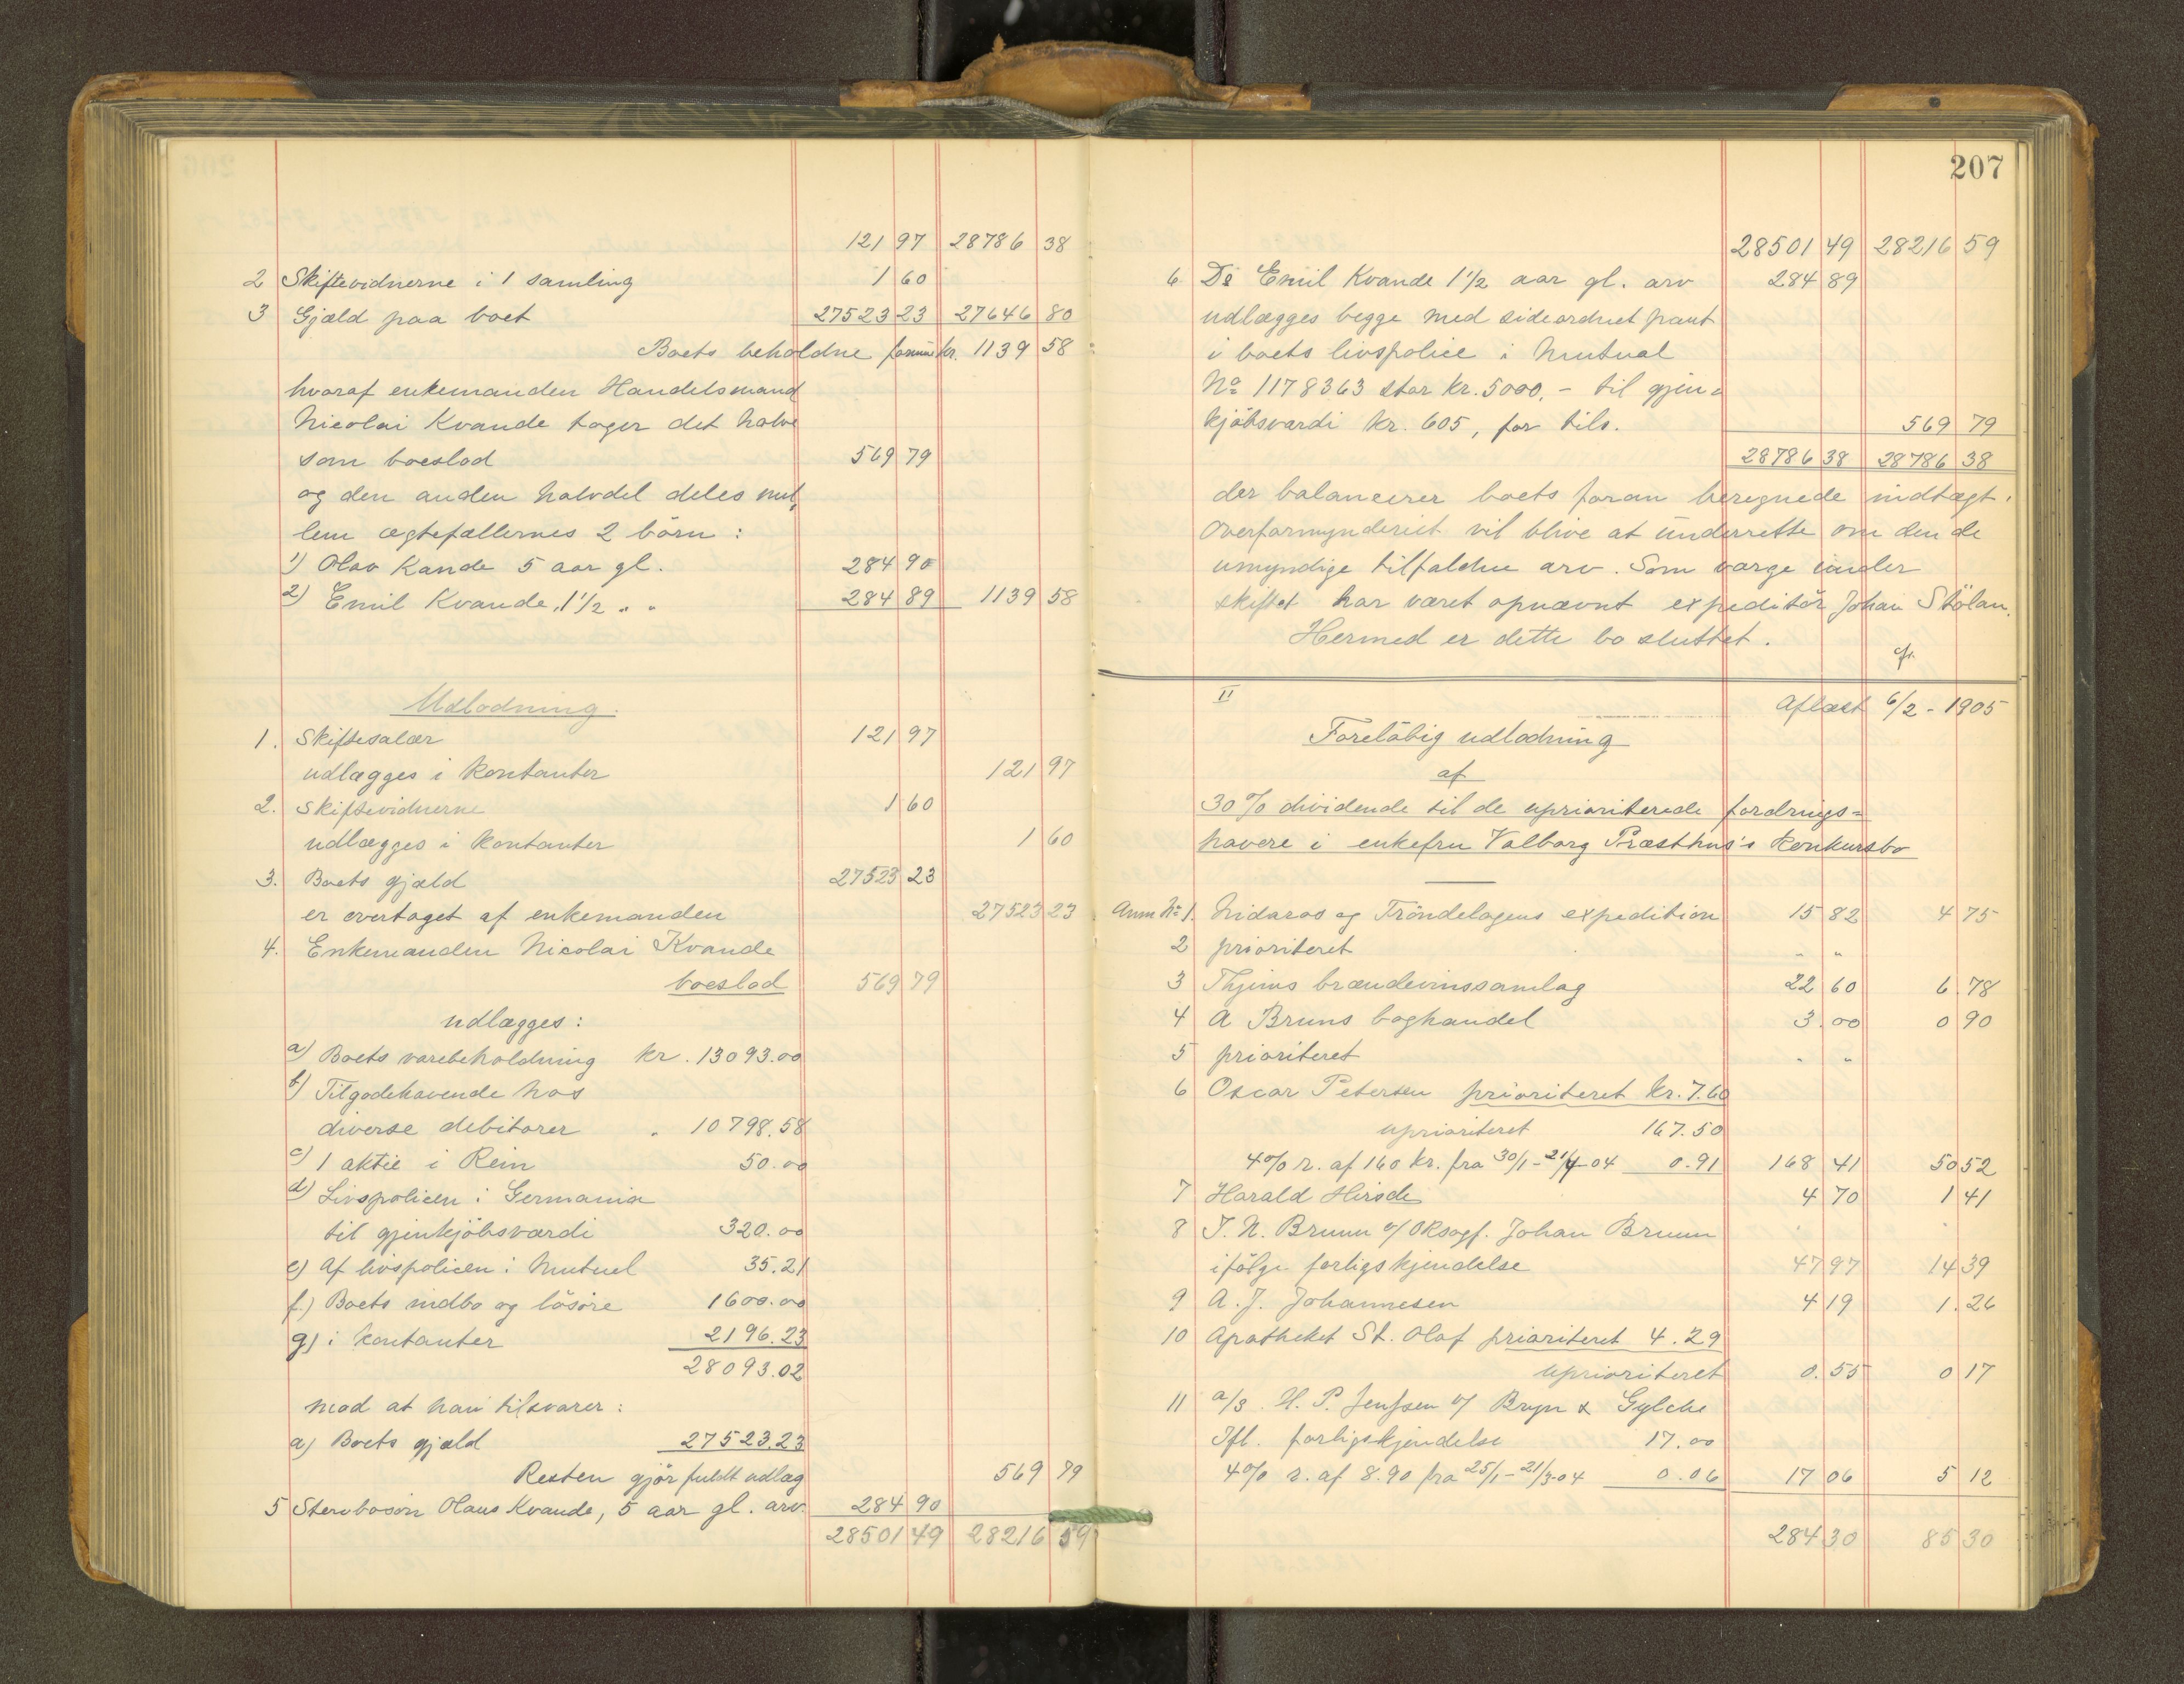 121 97 28786 38
2 Skiftevidnerne i 1 samling 1 60
3 Gjæld paa boet 27523 23 27646 80
Boets beholdne formue kr. 1139 58
hvoraf enkemanden Handelsmand
Nicolai Kvande tager det halve
som boeslod 569 79
og den anden halvdel deles mel,
lem ægtefællernes 2 børn:
1) Olav Kande 5 aar gl. 284 90
2) Emil Kvande, 1 1/2 " " 284 89 1139 58
Udlodning.
1. Skiftesalær 121 97
udlægges i kontanter 121 97
2. Skiftevidnerne 1 60
udlægges i kontanter 1 60
3. Boets gjæld 27523 23
er overtaget af enkemanden 27523 23
4. Enkemanden Nicolai Kvande
boeslod 569 79
udlægges:
a) Boets varebeholdning kr. 13093.00
b) Tilgodehavende hos
diverse debitorer " 10798.58
c) 1 aktie i Rein 50.00
d) Livspolicen i Germania
til gjenkjöbsværdi 320.00
e) Af livspolicen i Mutuel 35.21
f.) Boets indbo og lösöre 1600.00
g) i kontanter 2196.23
28093.02
mod at han tilsvarer:
a) Boets gjæld 27523.23
Resten gjör fuldt udlæg 569 79
5 Stervbosön Olaus Kvande, 5 aar gl. arv. 284 90
28501 49 28216 59
207
28501 49 28216 59
6 Ds Emil Kvande 1 1/2 aar gl. arv 284 89
udlægges begge med sideordnet pant
i boets livspolice i Mutual
No 1178363 stor kr. 5000,- til gjen=
kjöbsværdi kr. 605, for tils. 569 79
28786 38 28786 38
der balancerer boets foran beregnede indtægt.
Overformynderiet vil blive at underrette om den de
umyndige tilfaldne arv. Som værge under
skiftet har været opnævnt expeditör Johan Stölan.
Hermed er dette bo sluttet.
cfr.
II Aflæst 6/2 - 1905
Foreløbig udlodning
af
30 % dividende til de uprioriterede fordrings=
havere i enkefru Valborg Præsthus's konkursbo
Anm No 1. Nidaros og Tröndelagens expedition 15 82 4 75
2 prioriteret " "
3 Thjems brændevinssamlag 22 60 6 78
4 A Bruns boghandel 3.00 0 90
5 prioriteret " "
6 Oscar Petersen prioriteret kr. 7.60
uprioriteret 167.50
4% r. af 160 kr. fra 30/1 - 21/4 04 0.91 168 41 50 52
7 Harald Hirsch 4 70 1 41
8 J. N. Bruun v/ Oksagf. Johan Bruun
ifölge forligskjendelse 47 97 14 39
9 A. J. Johannesen 4 19 1.26
10 Apotheket St. Olaf prioriteret 4.29
uprioriteret 0.55 0 17
11 a/s. H. P. Jenssen v/ Bryn & Gylche
Ifl. forligskjendelse 17.00
4% r. af 8.90 fra 25/1 - 21/3 04 0.06 17 06 5 12
284 30 85 30